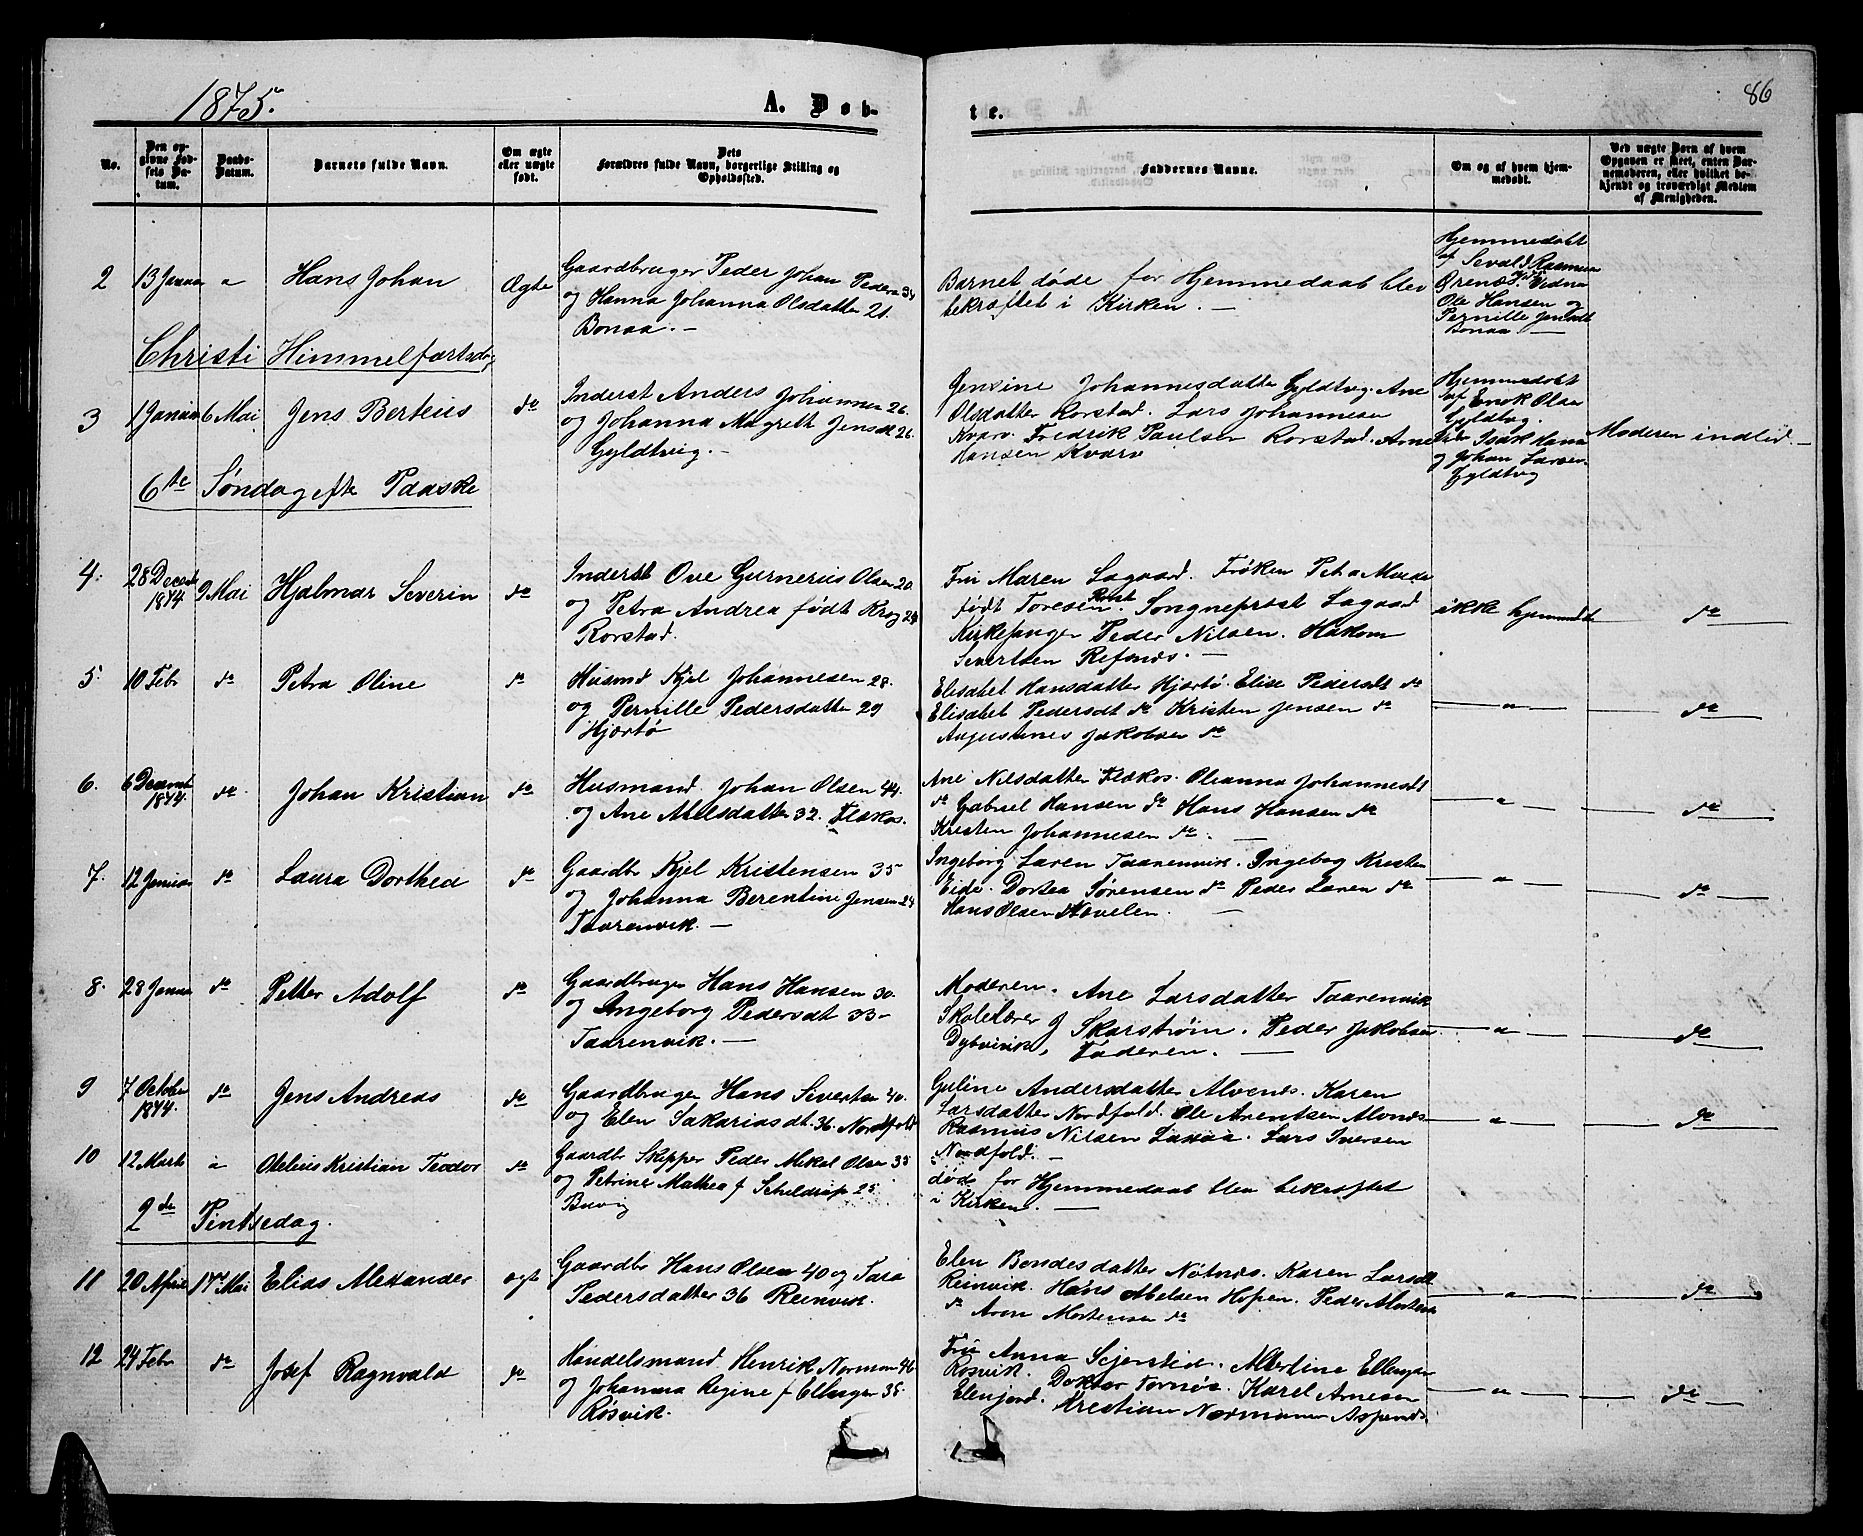 1875.
A. Døb-
te.
86
No.
Den op-
givne Fød-
sels Da-
tum.
Daabs-
Datum.
Barnets fulde Navn.
Om ægte
eller uægte
født.
Dets
Forældres fulde Navn, borgerlige Stilling og
Opholdssted.
Faddernes Navne.
Om og af hvem hjem-
medøbt.
Ved uægte Børn af hvem
Opgaven er skeet, enten Bar-
nemoderen, eller hvilket be-
kjendt og troværdigt Medlem
af Menigheden.
2 13 Janua " Hans Johan Ægte
Gaardbruger Peder Johan Peders 34
og Hanna Johanna Olsdatter 21.
Bonaa. —
Barnet døde før Hjemmedaab blev
bekræftet i Kirken. —
Hjemmedøbt
af Sevald Rasmus
Ørenes. Vidner
Ole Hansen og
Pernille Jensdt
Bonaa —
Christi Himmelfartsdag
3 1 Januar 6 Mai Jens Berteus do
Inderst Anders Johannes 26.
og Johanna Magreth Jensdt 26.
Gyldtvig. —
Jensine Johannesdatter Gyldtvg. Ane
Olsdatter Rorstad. Lars Johannesen
Kvarv. Fredrik Paulsen Rorstad. Arne
Hansen Kvarv
Hjemmedøbt
af Enok Olsen
Gyldtvg.
Isak Hans
og Johan Larsen
Gyldtvg
Moderen indlid. —
6te Søndag efte Paaske
4. 28 Decemb 1874. 9 Mai Hjalmar Severin do
Inderst Ove Gurnerius Olsen 20.
og Petra Andrea født Krog 24
Rorstad.
Fru Maren Lagaard. Frøken Petra Molde
født Toresen. Songneprest Lagaard
Kirkesanger Peder Nilsen. Hakon
Sivertsen Refsnes. —
ikke hjemmedt
do
5. 10 Febr do Petra Oline do
Husmd Kjel Johannesen 28.
og Pernille Pedersdatter 29
Hjertø
Elisabet Hansdatter Hjertø. Elise Pedersdt do
Elisabet Pedersdt do Kristen Jensen do
Augustines Jakobsen do
— " —
do
6. 6 Decemb 1874. do Johan Kristian do
Husmand Johan Olsen 44.
og Ane Nilsdatter 32. Flakos.
Ane Nilsdatter Flakos. Oleanna Johannesdt
do Gabriel Hansen do Hans Hansen do
Kristen Johannesen do. —
— " —
do
7. 12 Januar do Laura Dorthea do
Gaardbr Kjel Kristensen 35
og Johanna Berentine Jensen 24
Taarenvik. —
Ingeborg Laren Taarenvik. Ingebog Kristen
Eide. Dortea Sørensen do Peder Laren do
Hans Olsen Hovelen. —
— " —
do
8. 28 Janua do Petter Adolf do
Gaardbruger Hans Hansen 30.
og Ingeborg Pedersdt 33 —
Taarenvik. —
Moderen. Ane Larsdatter Taarenvik
Skolelærer J Skarstrøm. Peder Jakobsen
Dybvivik, Faderen. —
— " —
do
9 7 October 1874. do Jens Andreas do
Gaardbruger Hans Siverten 40.
og Elen Sakariasdt. 36. Nordfold
Guline Andersdatter Alvenes. Karen
Larsdatter Nordfold. Ole Arentsen Alvnes
Rasmus Nilsen Laxaa. Lars Iversen
Nordfold. —
— " —
do
10 12 Marts " Otelius Kristian Teodor do
Gaardbr Skipper Peder Mikal Olsen 35
og Petrine Mathea f Scheldrup 25
Buvig
døde før Hjemmedaab blev bekræftet
i Kirken. —
2den Pintsedag.
11 20 April 17de Mai Elias Alexander ægte
Gaardbr Hans Olsen 40 og Sara
Pedersdatter 36 Reinvik.
Elen Bendesdatter Nøtnes. Karen Larsdt
Reinvik. Hans Abelsen Hopen. Peder Mortens
do Aron Mortensen do
— " —
do
12 24 Febr do Josef Ragnvald do
Handelsmand Henrik Norman 46
og Johanna Regine f Ellingsen 35.
Røsvik.
Fru Anna Sejersted. Albertine Ellingsen
Røsvik. Doktor Tornøe. Karel Arnesen
Elvfjord. Kristian Normann Aspenes.
— " —
do